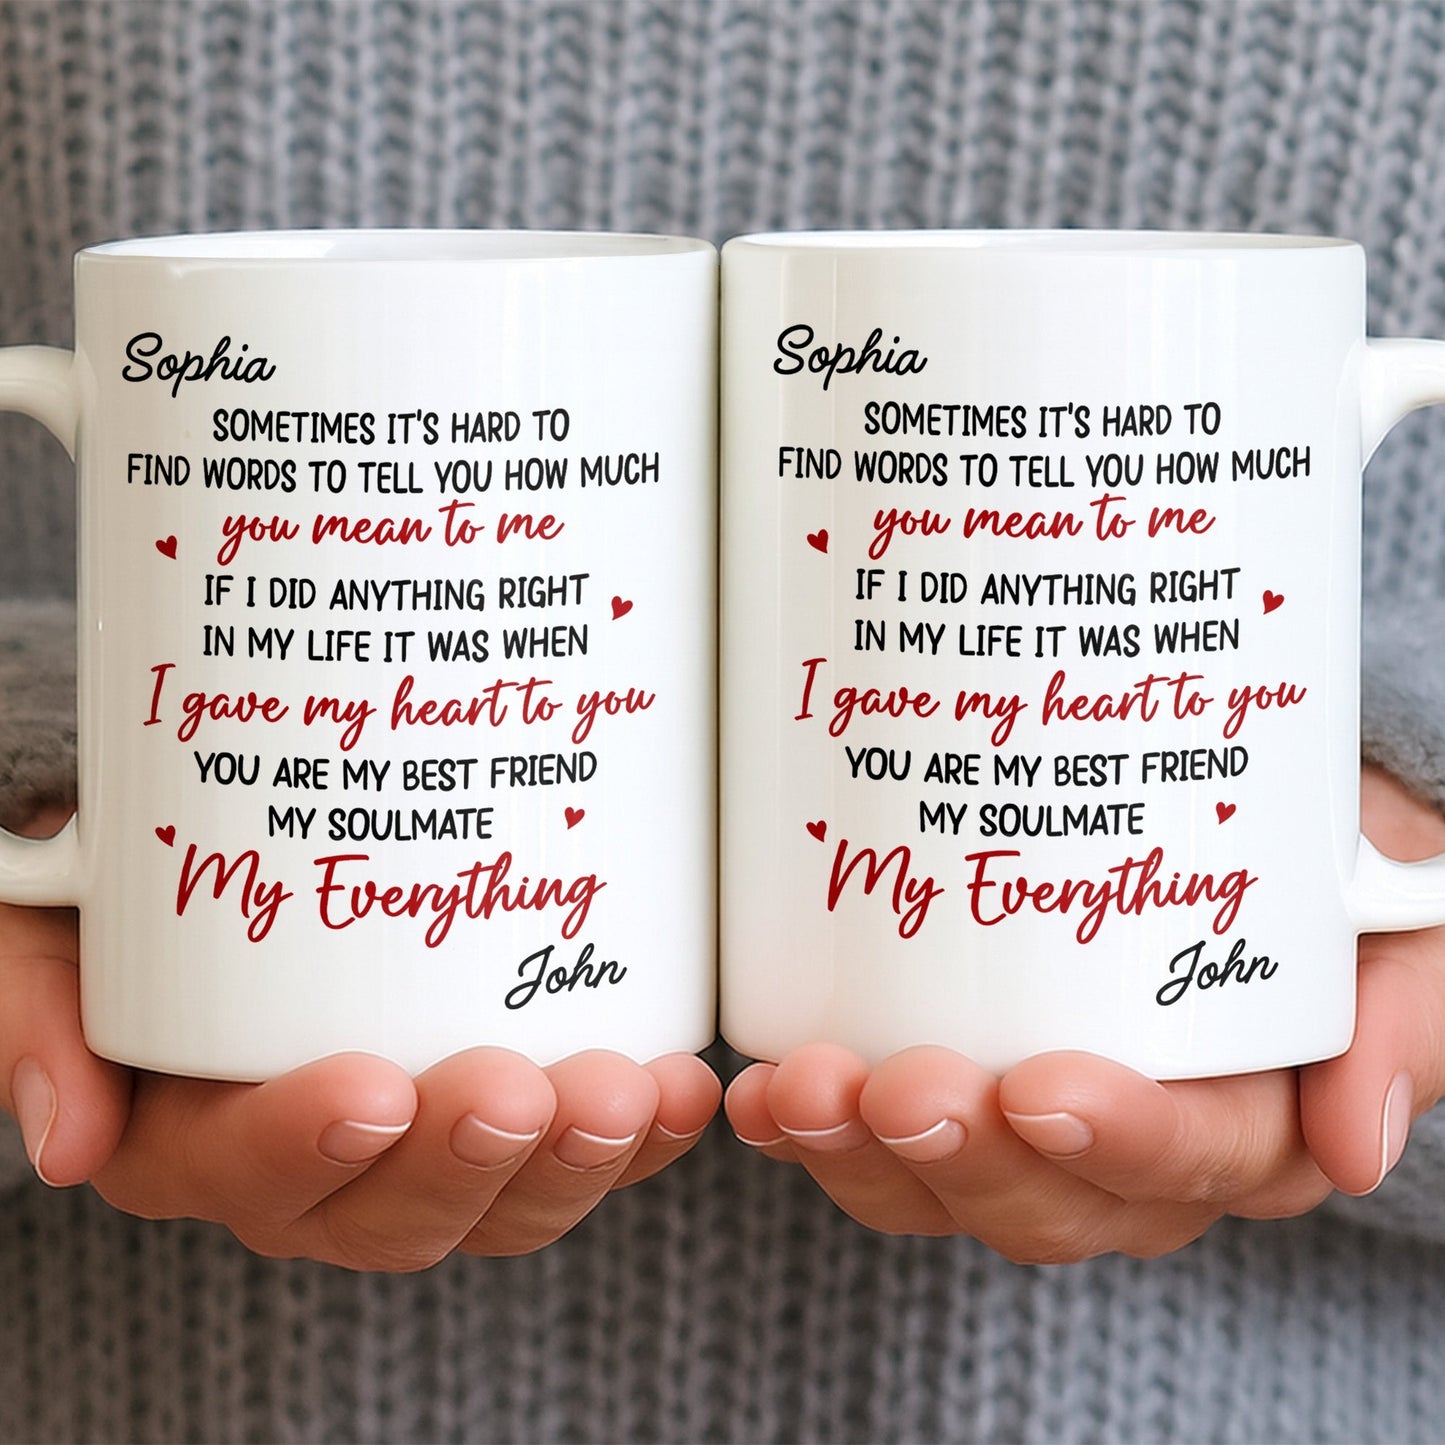 Sophia
SOMETIMES IT'S HARD TO
FIND WORDS TO TELL YOU HOW MUCH
you mean to me
IF I DID ANYTHING RIGHT
IN MY LIFE IT WAS WHEN
I gave my heart to you
YOU ARE MY BEST FRIEND
MY SOULMATE
My Everything
John
Sophia
SOMETIMES IT'S HARD TO
FIND WORDS TO TELL YOU HOW MUCH
you mean to me
IF I DID ANYTHING RIGHT
IN MY LIFE IT WAS WHEN
I gave my heart to you
YOU ARE MY BEST FRIEND
MY SOULMATE
My Everything
John